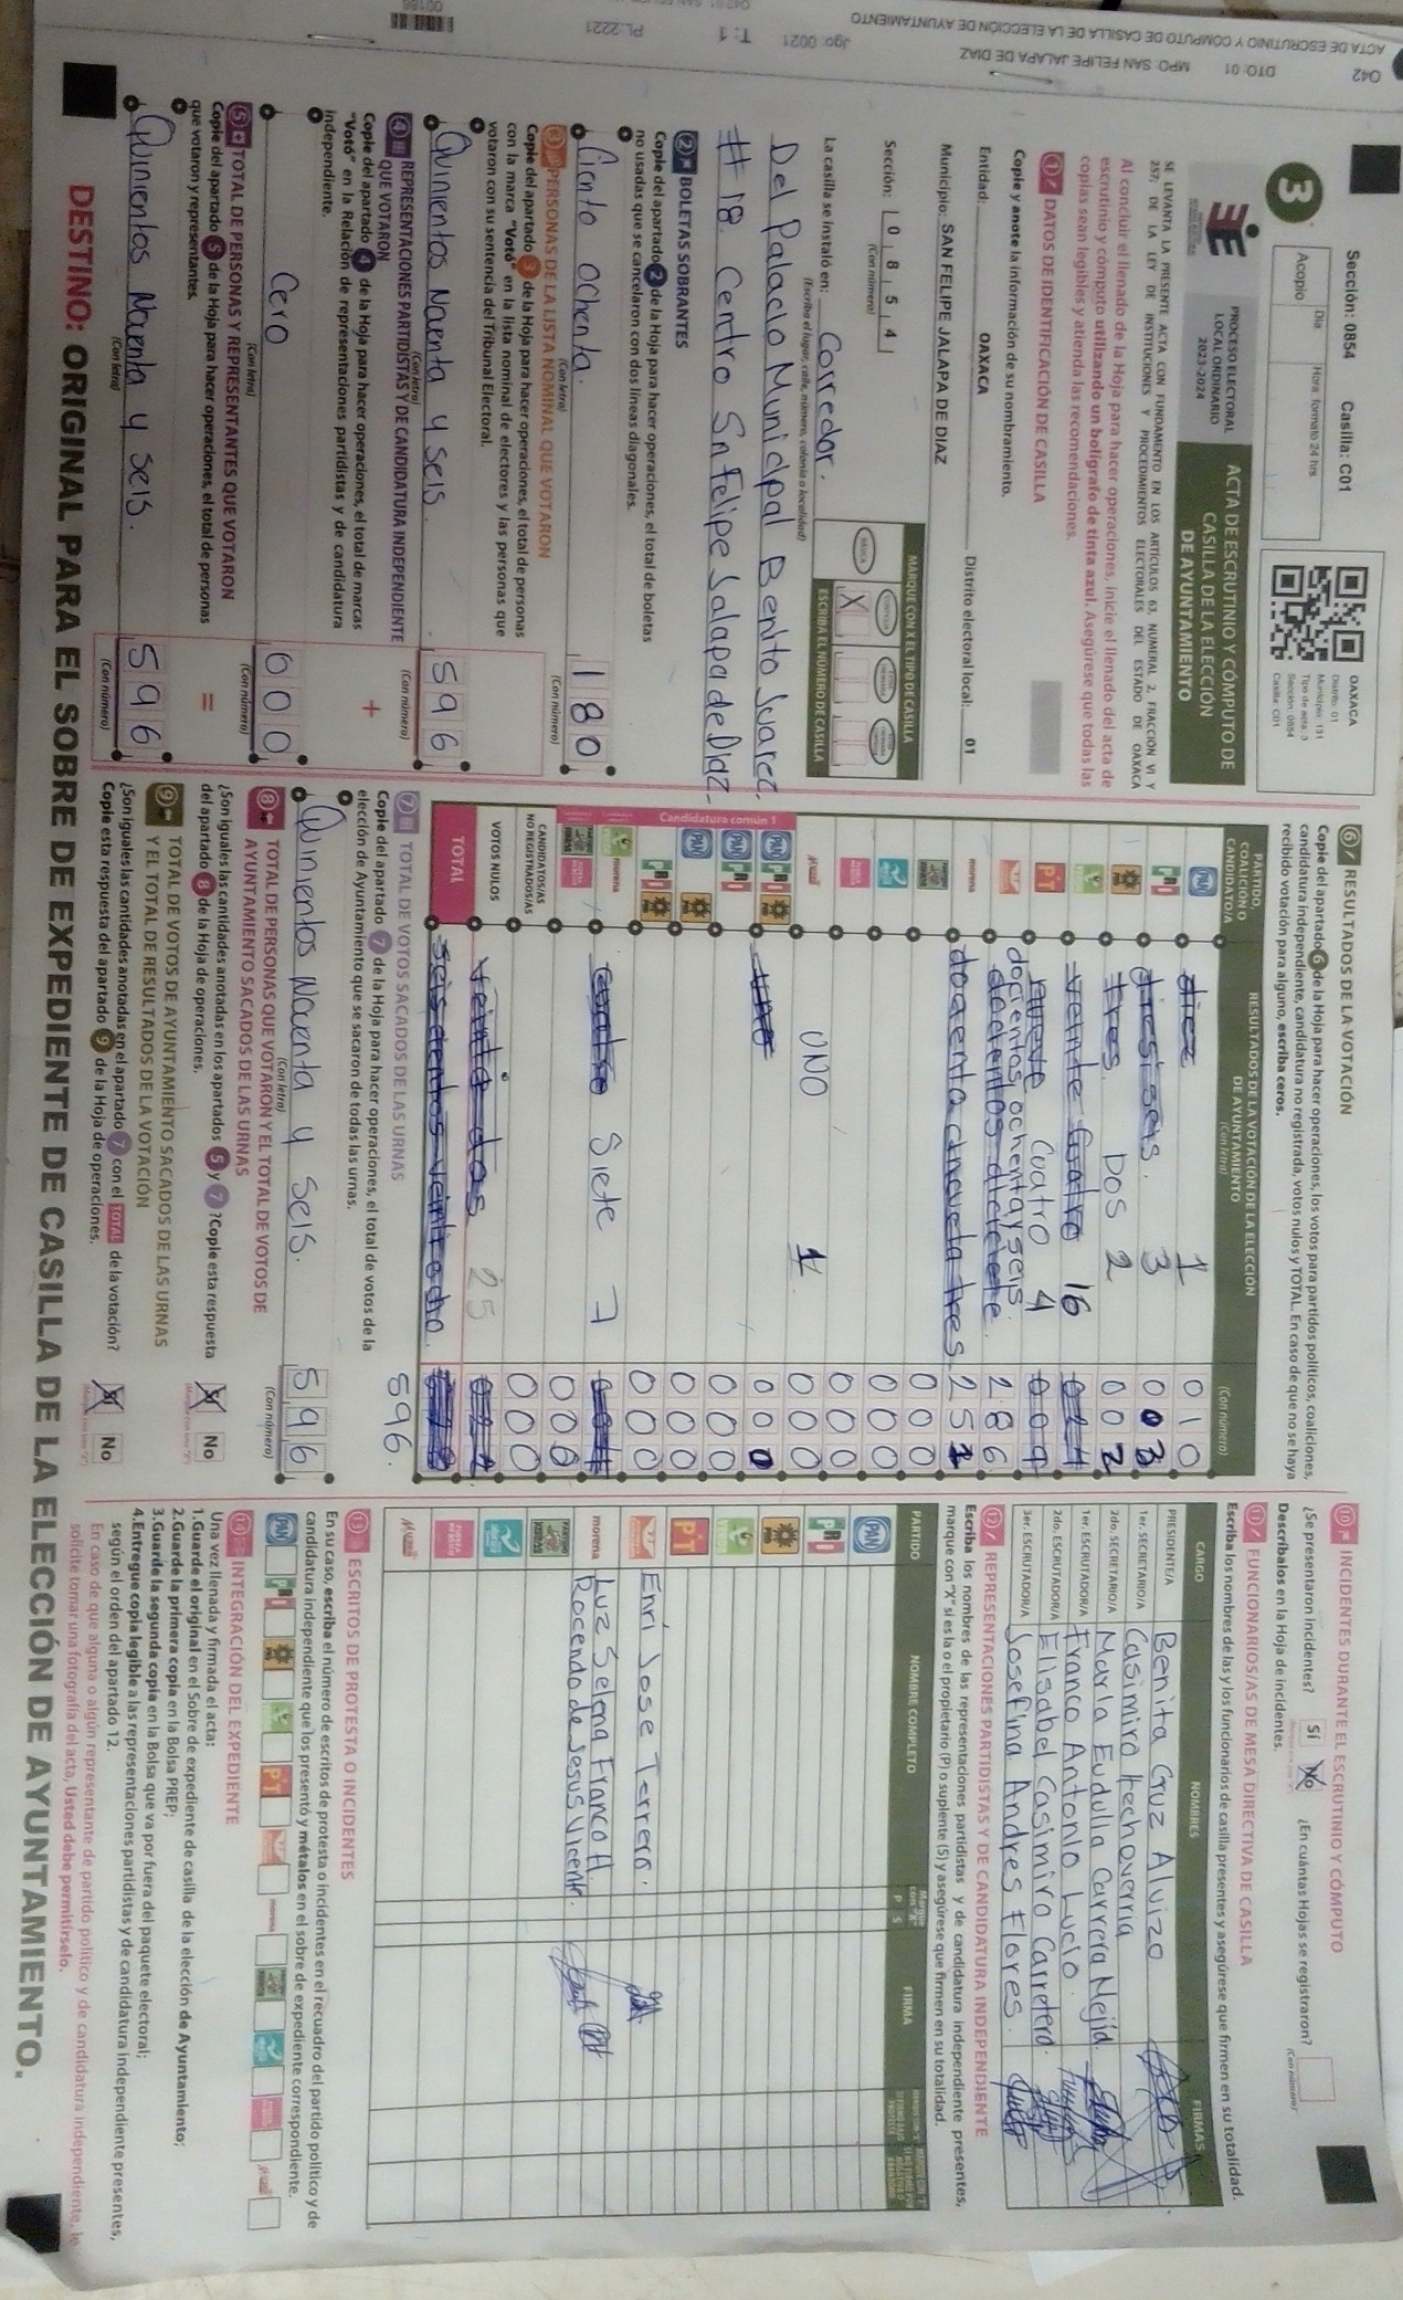 Q42 DTO: 01 MPO: SAN FELIPE JALAPA DE DIAZ
ACTA DE ESCRUTINIO Y CÓMPUTO DE CASILLA DE LA ELECCIÓN DE AYUNTAMIENTO
Jgo: 0021 T: 1 PL:2221
Sección: 0854 Casilla: C01
3
Día Hora: formato 24 hrs
Acopio
OAXACA
Distrito: 01
Municipio: 131
Tipo de acta: 3
Sección: 0854
Casilla: C01
PROCESO ELECTORAL
LOCAL ORDINARIO
2023-2024
ACTA DE ESCRUTINIO Y CÓMPUTO DE
CASILLA DE LA ELECCIÓN
DE AYUNTAMIENTO
SE LEVANTA LA PRESENTE ACTA CON FUNDAMENTO EN LOS ARTÍCULOS 63, NUMERAL 2, FRACCIÓN VI Y
257; DE LA LEY DE INSTITUCIONES Y PROCEDIMIENTOS ELECTORALES DEL ESTADO DE OAXACA
Al concluir el llenado de la Hoja para hacer operaciones, inicie el llenado del acta de
escrutinio y cómputo utilizando un bolígrafo de tinta azul. Asegúrese que todas las
copias sean legibles y atienda las recomendaciones.
1 DATOS DE IDENTIFICACIÓN DE CASILLA
Copie y anote la información de su nombramiento.
Entidad: OAXACA Distrito electoral local: 01
Municipio: SAN FELIPE JALAPA DE DIAZ
Sección: 0 8 5 4
(Con número)
MARQUE CON X EL TIPO DE CASILLA
BÁSICA X
ESCRIBA EL NÚMERO DE CASILLA
La casilla se instaló en: Corredor.
(Escriba el lugar, calle, número, colonia o localidad)
Del Palacio Municipal Benito Juarez.
#18 Centro Sn Felipe Jalapa de Diaz.
2 BOLETAS SOBRANTES
Copie del apartado 2 de la Hoja para hacer operaciones, el total de boletas
no usadas que se cancelaron con dos líneas diagonales.
Ciento ochenta. 180
(Con letra) (Con número)
3 PERSONAS DE LA LISTA NOMINAL QUE VOTARON
Copie del apartado 3 de la Hoja para hacer operaciones, el total de personas
con la marca "Votó" en la lista nominal de electores y las personas que
votaron con su sentencia del Tribunal Electoral.
Quinientos Noventa y seis. 596
(Con letra) (Con número)
4 REPRESENTACIONES PARTIDISTAS Y DE CANDIDATURA INDEPENDIENTE
QUE VOTARON +
Copie del apartado 4 de la Hoja para hacer operaciones, el total de marcas
"Votó" en la Relación de representaciones partidistas y de candidatura
independiente.
Cero 000
(Con letra) (Con número)
5 TOTAL DE PERSONAS Y REPRESENTANTES QUE VOTARON
Copie del apartado 5 de la Hoja para hacer operaciones, el total de personas
que votaron y representantes. =
Quinientos Noventa y seis. 596
(Con letra) (Con número)
6 RESULTADOS DE LA VOTACIÓN
Copie del apartado 6 de la Hoja para hacer operaciones, los votos para partidos políticos, coaliciones,
candidatura independiente, candidatura no registrada, votos nulos y TOTAL. En caso de que no se haya
recibido votación para alguno, escriba ceros.
PARTIDO,
COALICIÓN O
CANDIDATO/A
RESULTADOS DE LA VOTACIÓN DE LA ELECCIÓN
DE AYUNTAMIENTO
(Con letra) (Con número)
PAN diez 1 010
PRI dieciseis. 3 003
PRD tres. DOS 2 002
veinte Cuatro 16 024
PT nueve Cuatro 4 009
docientos ochentayseis.
docientos dieciciete. 286
morena docenta cincuenta tres 251
000
000
000
000
UNO 1 000
Candidatura común 1
PAN PRI PRD uno 000
PAN PRI 000
PAN PRD 000
PRI PRD 000
morena cuatro Siete 7 004
000
CANDIDATOS/AS
NO REGISTRADOS/AS 000
VOTOS NULOS veinte dos 25
TOTAL seiscientos veintiocho.
596.
7 TOTAL DE VOTOS SACADOS DE LAS URNAS
Copie del apartado 7 de la Hoja para hacer operaciones, el total de votos de la
elección de Ayuntamiento que se sacaron de todas las urnas.
Quinientos Noventa y seis. 596
(Con letra) (Con número)
8 TOTAL DE PERSONAS QUE VOTARON Y EL TOTAL DE VOTOS DE
AYUNTAMIENTO SACADOS DE LAS URNAS
¿Son iguales las cantidades anotadas en los apartados 5 y 7 ?Copie esta respuesta
del apartado 8 de la Hoja de operaciones. Sí No
9 TOTAL DE VOTOS DE AYUNTAMIENTO SACADOS DE LAS URNAS
Y EL TOTAL DE RESULTADOS DE LA VOTACIÓN
¿Son iguales las cantidades anotadas en el apartado 7 con el TOTAL de la votación?
Copie esta respuesta del apartado 9 de la Hoja de operaciones. Sí No
10 INCIDENTES DURANTE EL ESCRUTINIO Y CÓMPUTO
¿Se presentaron incidentes? Sí No ¿En cuántas Hojas se registraron?
(Con número)
Descríbalos en la Hoja de incidentes.
11 FUNCIONARIOS/AS DE MESA DIRECTIVA DE CASILLA
Escriba los nombres de las y los funcionarios de casilla presentes y asegúrese que firmen en su totalidad.
CARGO NOMBRES FIRMAS
PRESIDENTE/A Benita Cruz Aluizo
1er. SECRETARIO/A Casimiro Hechaverria
2do. SECRETARIO/A Maria Eudulia Carrera Mejia.
1er. ESCRUTADOR/A Franco Antonio Lucio.
2do. ESCRUTADOR/A Elisabel Casimiro Carretero.
3er. ESCRUTADOR/A Josefina Andres Flores.
12 REPRESENTACIONES PARTIDISTAS Y DE CANDIDATURA INDEPENDIENTE
Escriba los nombres de las representaciones partidistas y de candidatura independiente presentes,
marque con "X" si es la o el propietario (P) o suplente (S) y asegúrese que firmen en su totalidad.
PARTIDO NOMBRE COMPLETO P S FIRMA
PAN
PRI
PRD
PT
Enri Jose Terrero.
morena Luz Selena Franco H.
Rocendo de Jesus Vicente.
13 ESCRITOS DE PROTESTA O INCIDENTES
En su caso, escriba el número de escritos de protesta o incidentes en el recuadro del partido político y de
candidatura independiente que los presentó y métalos en el sobre de expediente correspondiente.
PAN PRI PRD PT morena
14 INTEGRACIÓN DEL EXPEDIENTE
Una vez llenada y firmada el acta:
1.Guarde el original en el Sobre de expediente de casilla de la elección de Ayuntamiento;
2.Guarde la primera copia en la Bolsa PREP;
3.Guarde la segunda copia en la Bolsa que va por fuera del paquete electoral;
4.Entregue copia legible a las representaciones partidistas y de candidatura independiente presentes,
según el orden del apartado 12.
En caso de que alguna o algún representante de partido político y de candidatura independiente, le
solicite tomar una fotografía del acta, Usted debe permitírselo.
DESTINO: ORIGINAL PARA EL SOBRE DE EXPEDIENTE DE CASILLA DE LA ELECCIÓN DE AYUNTAMIENTO.